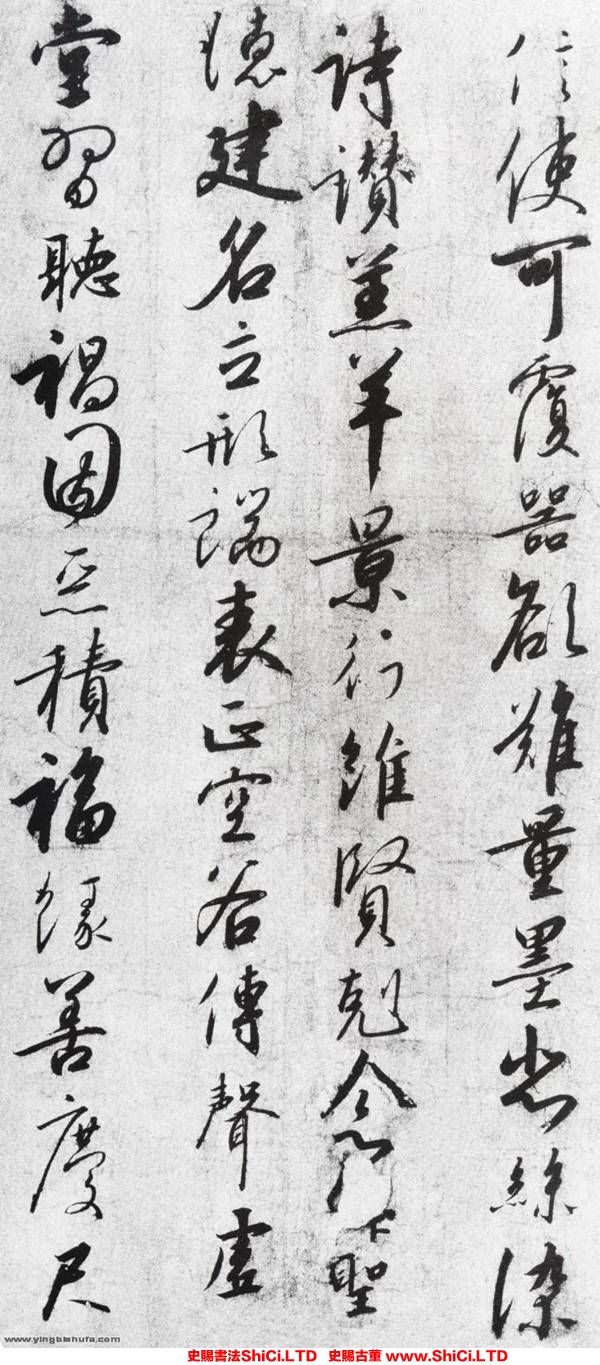 信使可覆器欲難量墨悲絲染
詩讚羔羊景行維賢剋念作聖
德建名立形端表正空谷傳聲虛
堂習聽禍因惡積福緣善慶尺
www.yingbishufa.com
史賜書法ShiCi.LTD 史賜古董 www.ShiCi.LTD